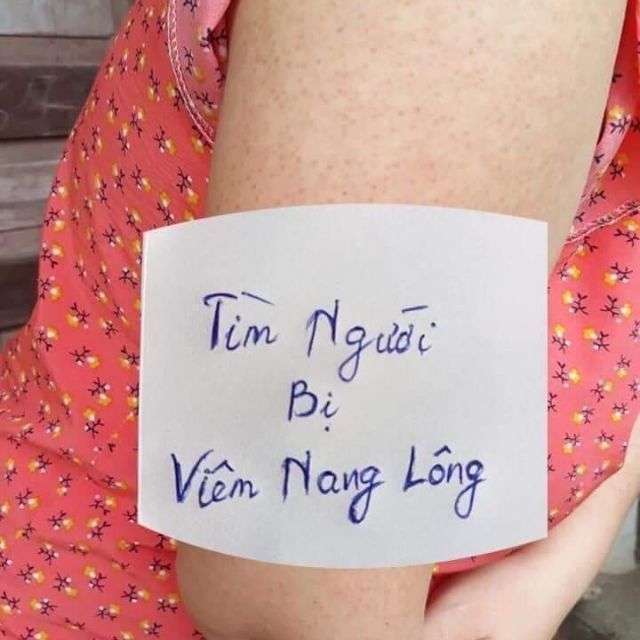 Tìm Người
Bị
Viêm Nang Lông